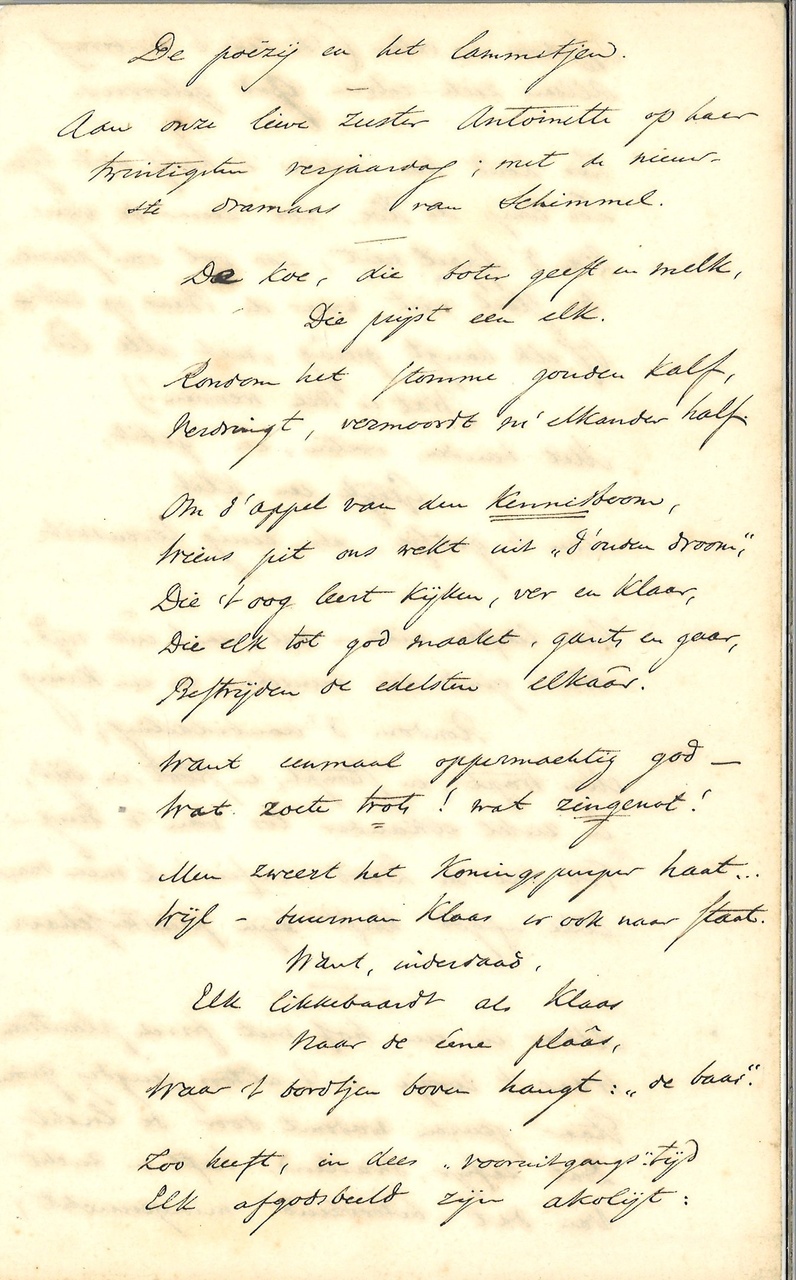 De poëzij en het lammetjen.
Aan onze lieve zuster Antoinette op haar
twintigsten verjaardag; met de nieuw-
ste dramaas van Schimmel.
De koe, die boter geeft en melk,
Die prijst een elk.
Rondom het stomme gouden kalf,
Verdringt, vermoordt m' elkander half.
Om d'appel van den Kennisboom,
Wiens pit ons wekt uit „d'ouden droom",
Die 't oog leert kijken, ver en klaar,
Die elk tot god maakt, gants en gaar,
Bestrijden de edelsten elkaâr.
Want eenmaal oppermachtig god —
Wat zoete trots! wat zingenot!
Men zweert het Koningspurper haat...
Wijl - buurman Klaas er ook naar staat.
Want, inderdaad,
Elk likkebaardt als Klaas
Naar de ééne plaâs,
Waar 't bordtjen boven hangt: „de baas".
Zoo heeft, in dees „vooruitgangs"tijd
Elk afgodsbeeld zijn akolijt: